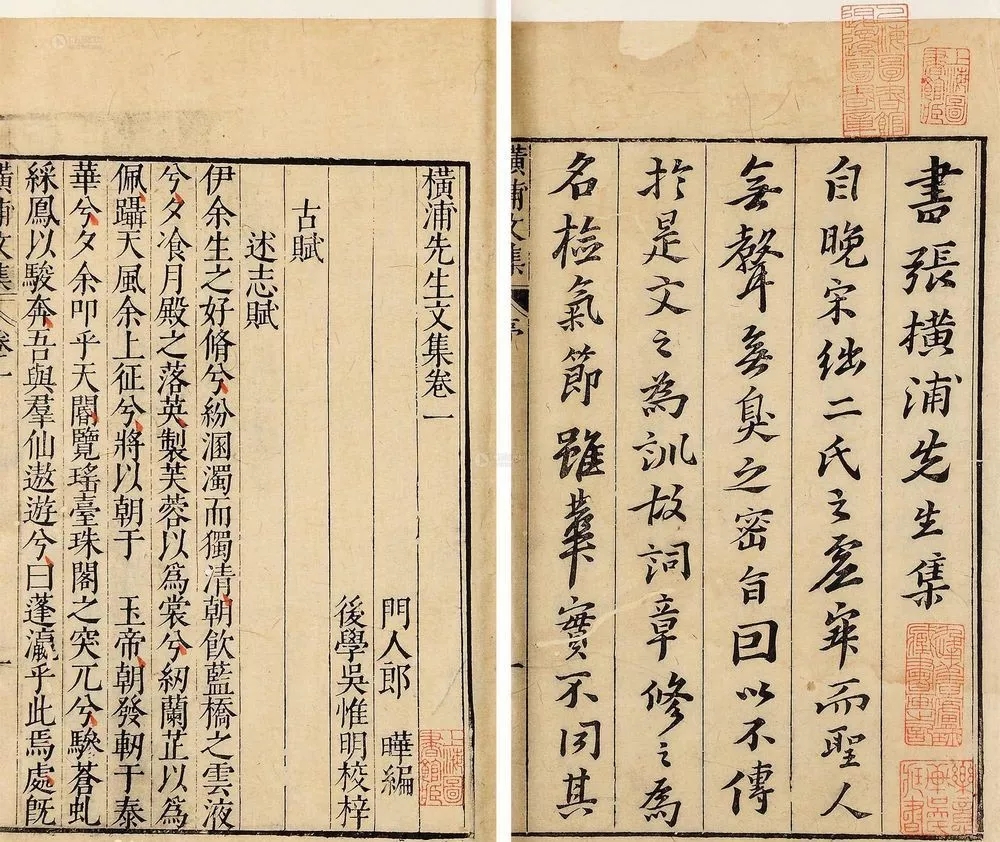 書張橫浦先生集
自晚宋絀二氏之虛寂而聖人
無聲無臭之密旨回以不傳
於是文之為訓故詞章修之為
名檢氣節雖華實不同其
橫浦文集
序
上海圖書館藏
橫浦先生文集卷一
門人郎 曄編
後學吳惟明校梓
古賦
述志賦
伊余生之好脩兮紛溷濁而獨清朝飲藍橋之雲液
兮夕飡月殿之落英製芙蓉以為裳兮紉蘭芷以為
佩躡天風余上征兮將以朝于 玉帝朝發軔于泰
華兮夕余叩乎天閽覽瑤臺珠閣之突兀兮驂蒼虬
綵鳳以駿奔吾與羣仙遨遊兮曰蓬瀛乎此焉處旣
橫浦文集
卷一
一
上海圖書館藏